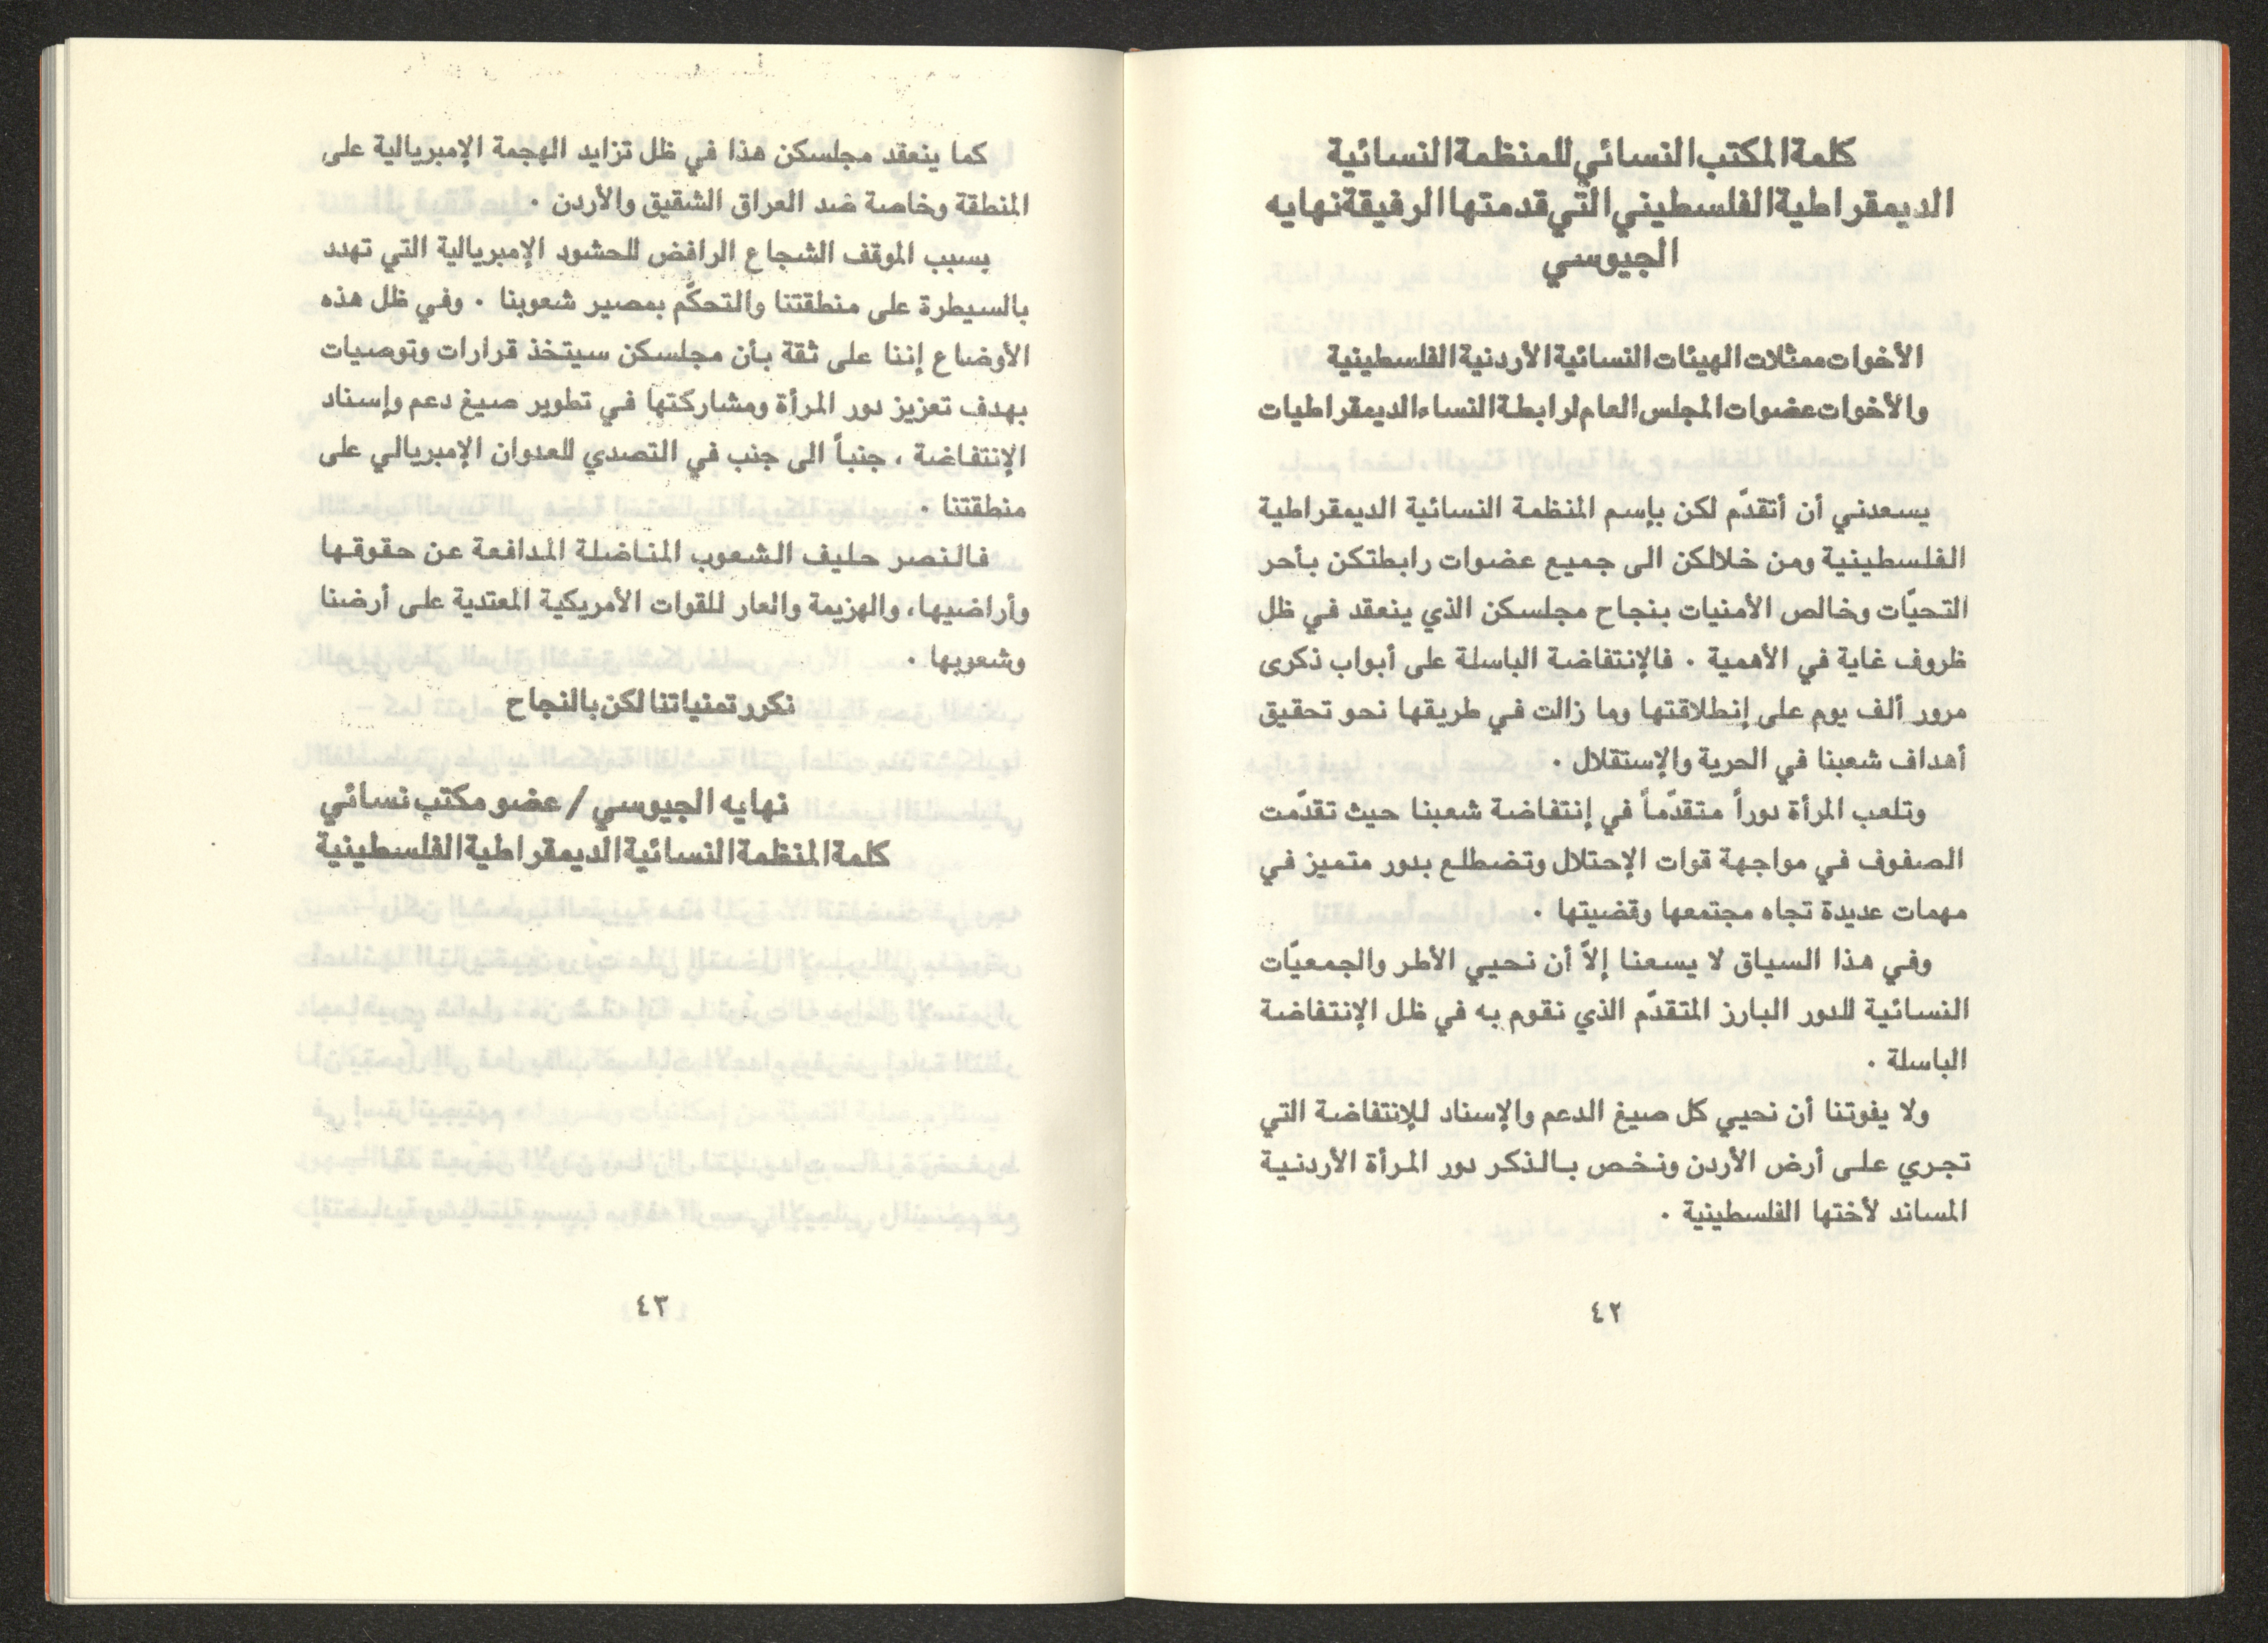 كلمة المكتب النسائي للمنظمة النسائية
الديمقراطية الفلسطيني التي قدمتها الرفيقة نهايه
الجيوسي
الأخوات ممثلات الهيئات النسائية الأردنية الفلسطينية
والأخوات عضوات المجلس العام لرابطة النساء الديمقراطيات
يسعدني أن أتقدّم لكن بإسم المنظمة النسائية الديمقراطية
الفلسطينية ومن خلالكن الى جميع عضوات رابطتكن بأحر
التحيّات وخالص الأمنيات بنجاح مجلسكن الذي ينعقد في ظل
ظروف غاية في الأهمية . فالإنتفاضة الباسلة على أبواب ذكرى
مرور ألف يوم على إنطلاقتها وما زالت في طريقها نحو تحقيق
أهداف شعبنا في الحرية والإستقلال .
وتلعب المرأة دوراً متقدّماً في إنتفاضة شعبنا حيث تقدّمت
الصفوف في مواجهة قوات الإحتلال وتضطلع بدور متميز في
مهمات عديدة تجاه مجتمعها وقضيتها .
وفي هذا السياق لا يسعنا إلاّ أن نحيي الأطر والجمعيّات
النسائية للدور البارز المتقدّم الذي نقوم به في ظل الإنتفاضة
الباسلة .
ولا يفوتنا أن نحيي كل صيغ الدعم والإسناد للإنتفاضة التي
تجري على أرض الأردن ونخص بالذكر دور المرأة الأردنية
المساند لأختها الفلسطينية .
٤٢
كما ينعقد مجلسكن هذا في ظل تزايد الهجمة الإمبريالية على
المنطقة وخاصة ضد العراق الشقيق والأردن .
بسبب الموقف الشجاع الرافض للحشود الإمبريالية التي تهدد
بالسيطرة على منطقتنا والتحكّم بمصير شعوبنا . وفي ظل هذه
الأوضاع إننا على ثقة بأن مجلسكن سيتخذ قرارات وتوصيات
بهدف تعزيز دور المرأة ومشاركتها في تطوير صيغ دعم وإسناد
الإنتفاضة ، جنباً الى جنب في التصدي للعدوان الإمبريالي على
منطقتنا .
فالنصر حليف الشعوب المناضلة المدافعة عن حقوقها
وأراضيها، والهزيمة والعار للقوات الأمريكية المعتدية على أرضنا
وشعوبها .
نكرر تمنياتنا لكن بالنجاح
نهايه الجيوسي / عضو مكتب نسائي
كلمة المنظمة النسائية الديمقراطية الفلسطينية
٤٣